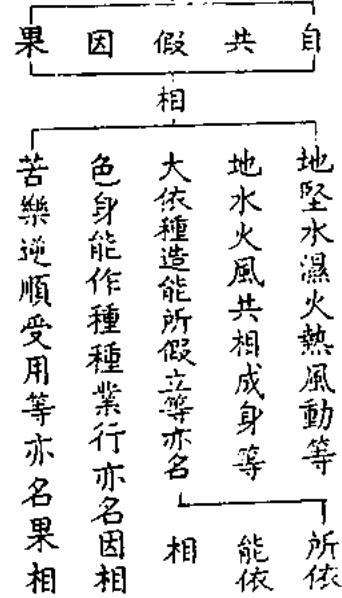 自共假因果
相
地堅水濕火熱風動等
地水火風共相成身等
大依種造能所假立等亦名
所依
能依
相
色身能作種種業行亦名因相
苦樂逆順受用等亦名果相